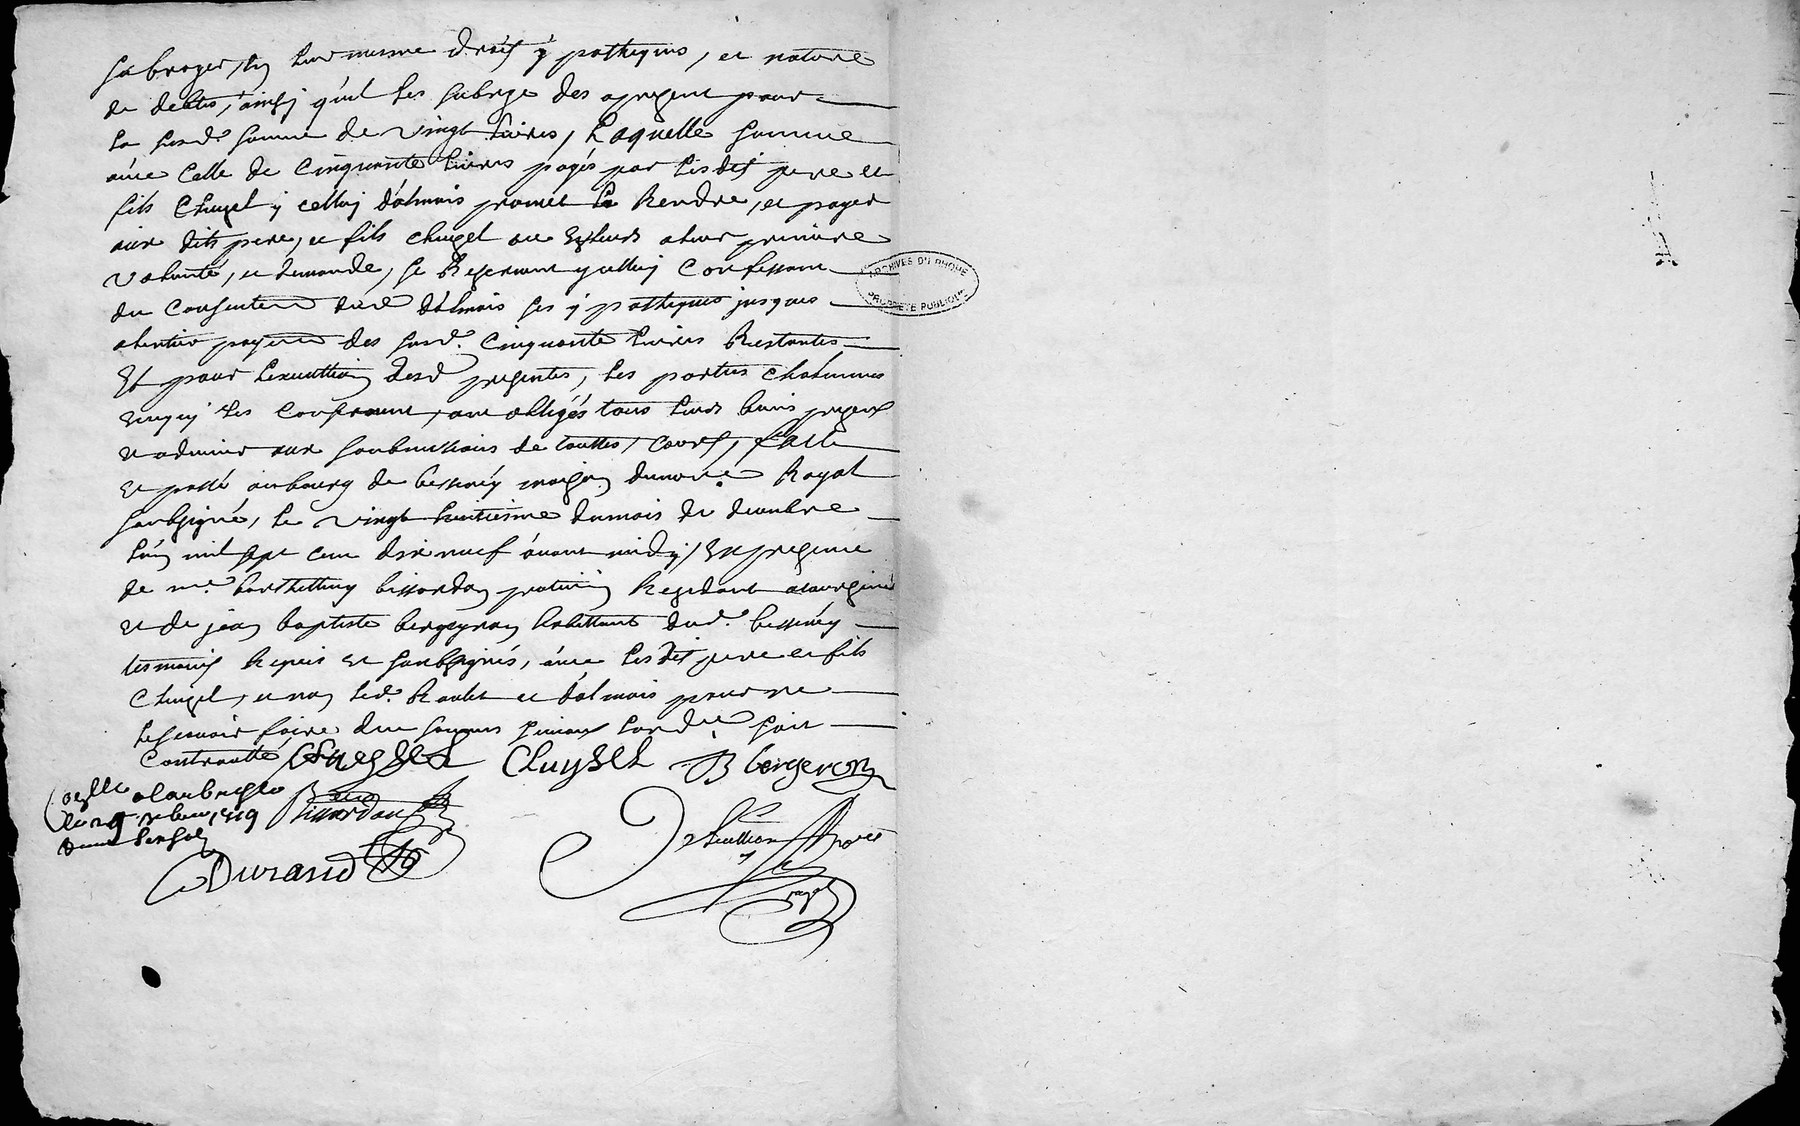 subroger, en leur mesme droit ypotheques, et nature
de debtes, ainsy qu'il les subroge des apresent pour
la susd. somme de vingt livres, Laquelle somme
avec Celle de Cinquante livres payés par lesdits pere et
fils Chuzel y celluy dalmais promet la Rendre, et payer
aux dits pere, et fils chuzel ou es leurs a leur premiere
volonté, et demande, se Reservant ycelluy Confessant
du Consentement dud dalmais ses ypotheques jusques
a lentier payement des susd. Cinquante livres Restantes
Et pour Lexecution desd presentes, les parties Chascunes
en qui les Concerne, ont obligés tous leurs biens presens
et advenir aux soubmissions de touttes, Cours, faict
et passé au bourg de bessenay maison du no.re Royal
soubsigné, le vingt huitiesme du mois de decembre
L'an mil sept cens dix neuf avant midy, En presence
de m.e barthellemy bissardon praticien Residant
et de jean baptiste bergeron habittant dud. bessenay
tesmoins Requis et soubsignés, avec lesdits pere et fils
Chuzel, et non led. Roulet et dalmais pour ne
le scavoir faire de ce sommes soit
Controllé Chuzel Chuysel JB bergeron
Con.lle a Larbresle
le 29 xbre 1719 Bissardon
Durand royal
ARCHIVES DU RHONE
PROPRIETE PUBLIQUE